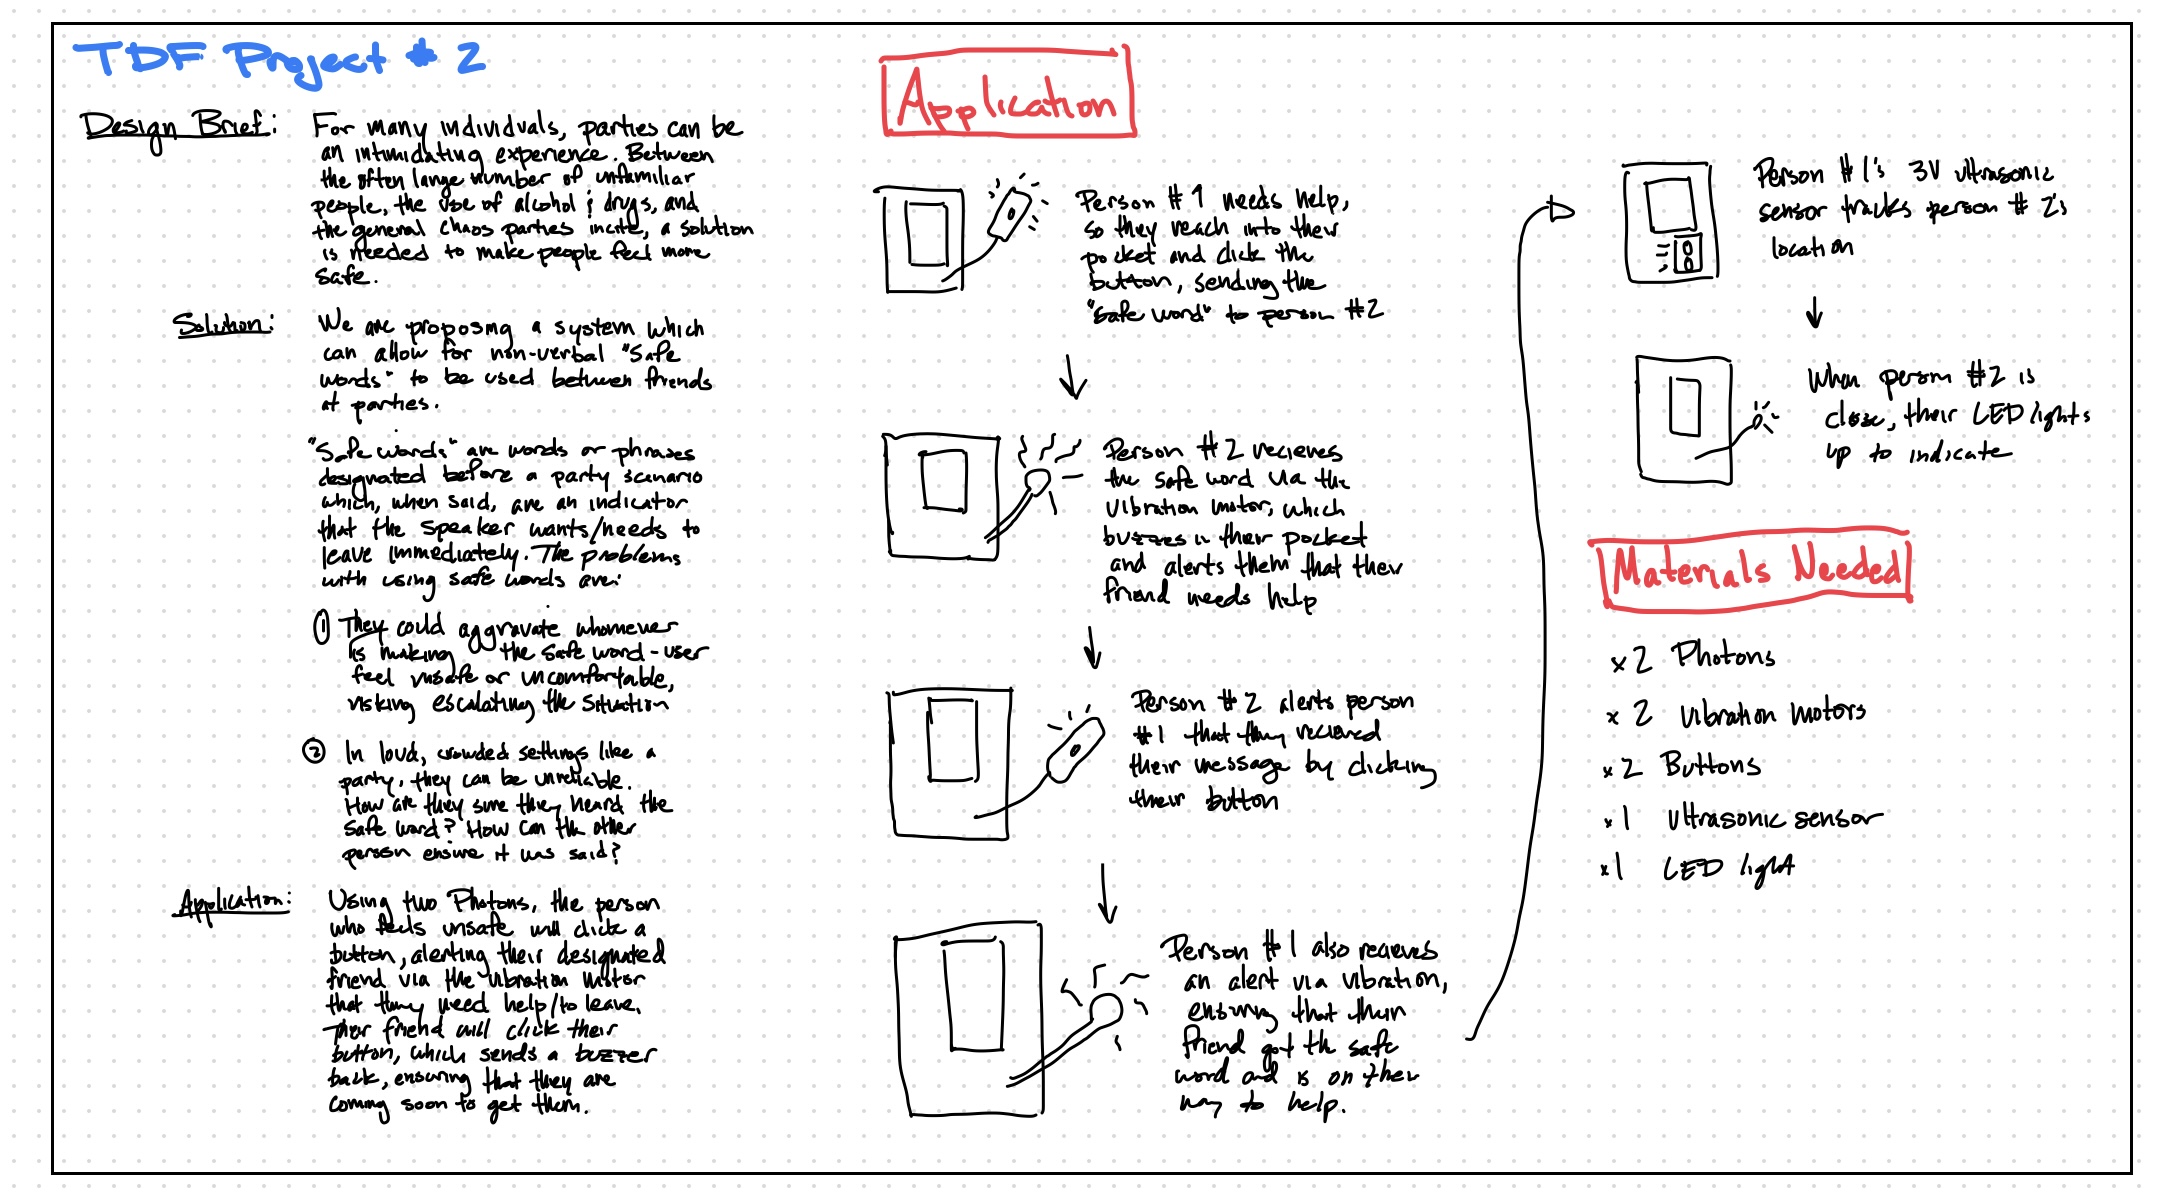 TDF Project #2
Design Brief:
For many individuals, parties can be
an intimidating experience. Between
the often large number of unfamiliar
people, the use of alcohol & drugs, and
the general chaos parties incite, a solution
is needed to make people feel more
safe.
Solution:
We are proposing a system which
can allow for non-verbal "Safe
words" to be used between friends
at parties.
"Safe words" are words or phrases
designated before a party scenario
which, when said, are an indicator
that the speaker wants/needs to
leave immediately. The problems
with using safe words are:
① They could aggravate whomever
is making the safe word-user
feel unsafe or uncomfortable,
risking escalating the situation
② In loud, crowded settings like a
party, they can be unreliable.
How are they sure they heard the
safe word? How can the other
person ensure it was said?
Application:
Using two Photons, the person
who feels unsafe will click a
button, alerting their designated
friend via the vibration motor
that they need help/to leave.
Their friend will click their
button, which sends a buzzer
back, ensuring that they are
coming soon to get them.
Application
Person #1 needs help,
so they reach into their
pocket and click the
button, sending the
"safe word" to person #2
Person #2 recieves
the safe word via the
vibration motor, which
buzzes in their pocket
and alerts them that their
friend needs help
Person #2 alerts person
#1 that they recieved
their message by clicking
their button
Person #1 also recieves
an alert via vibration,
ensuring that their
friend got the safe
word and is on their
way to help.
Person #1's 3V ultrasonic
sensor tracks person #2's
location
When person #2 is
close, their LED lights
up to indicate
Materials Needed
x2 Photons
x2 Vibration motors
x2 Buttons
x1 Ultrasonic sensor
x1 LED light